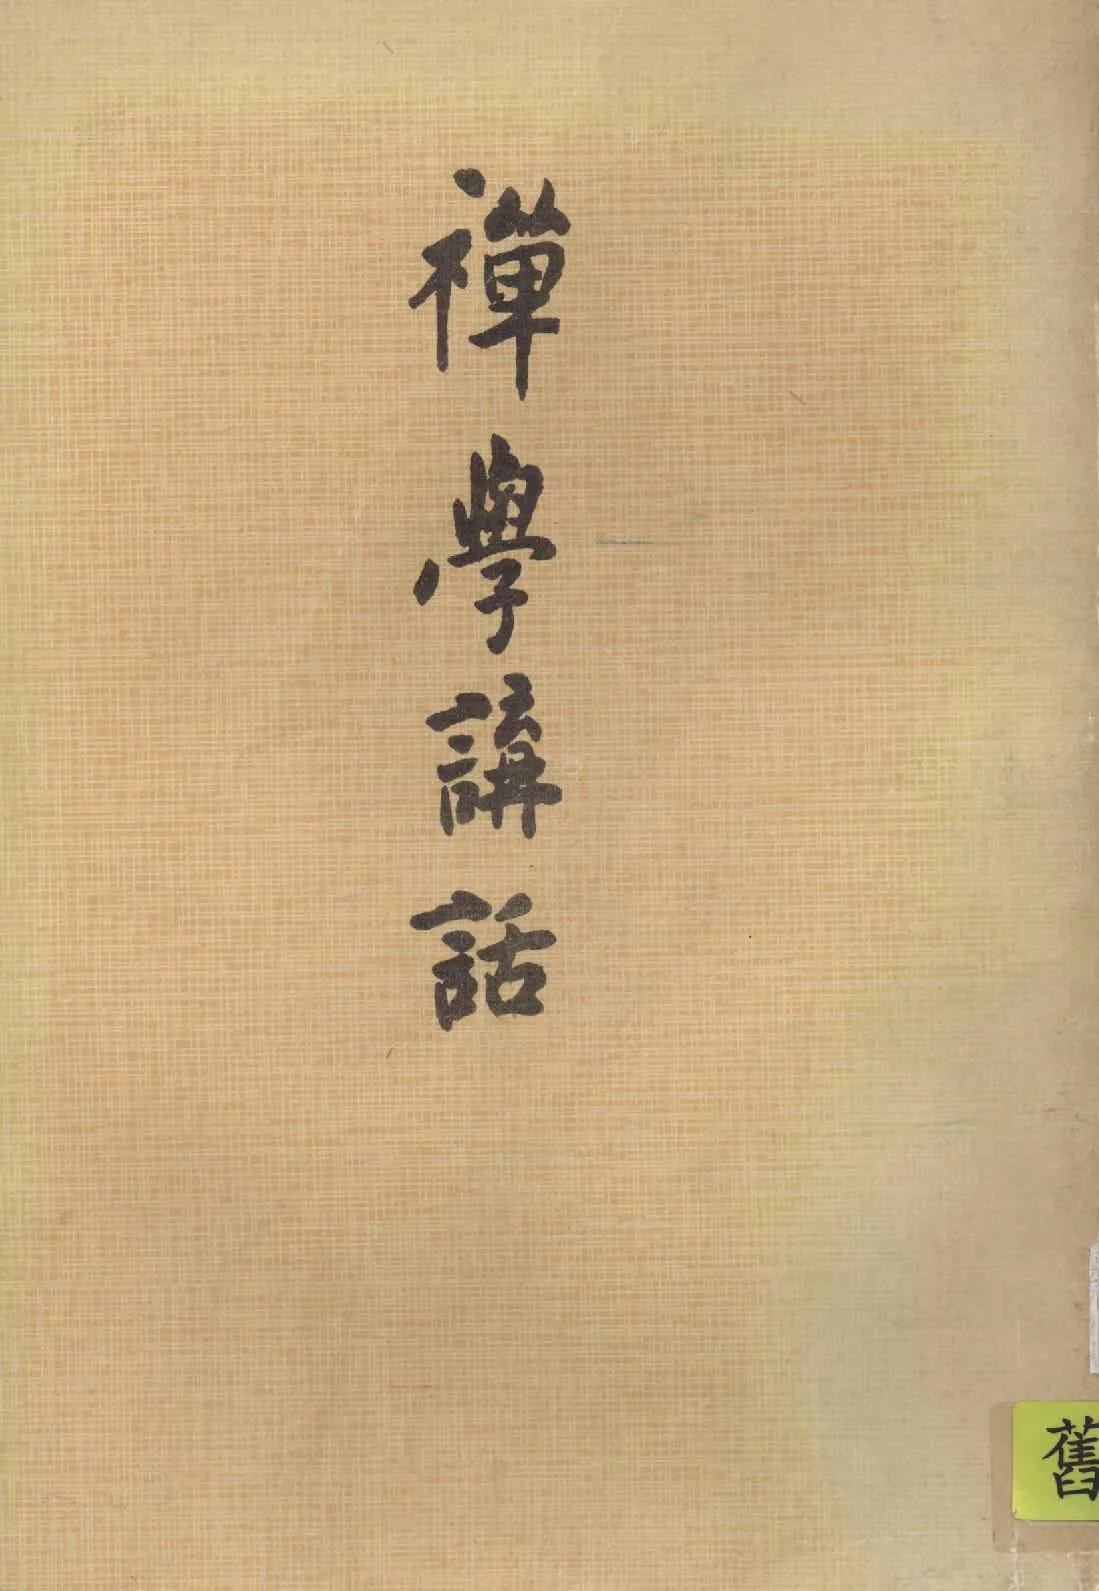 禪學講話
舊